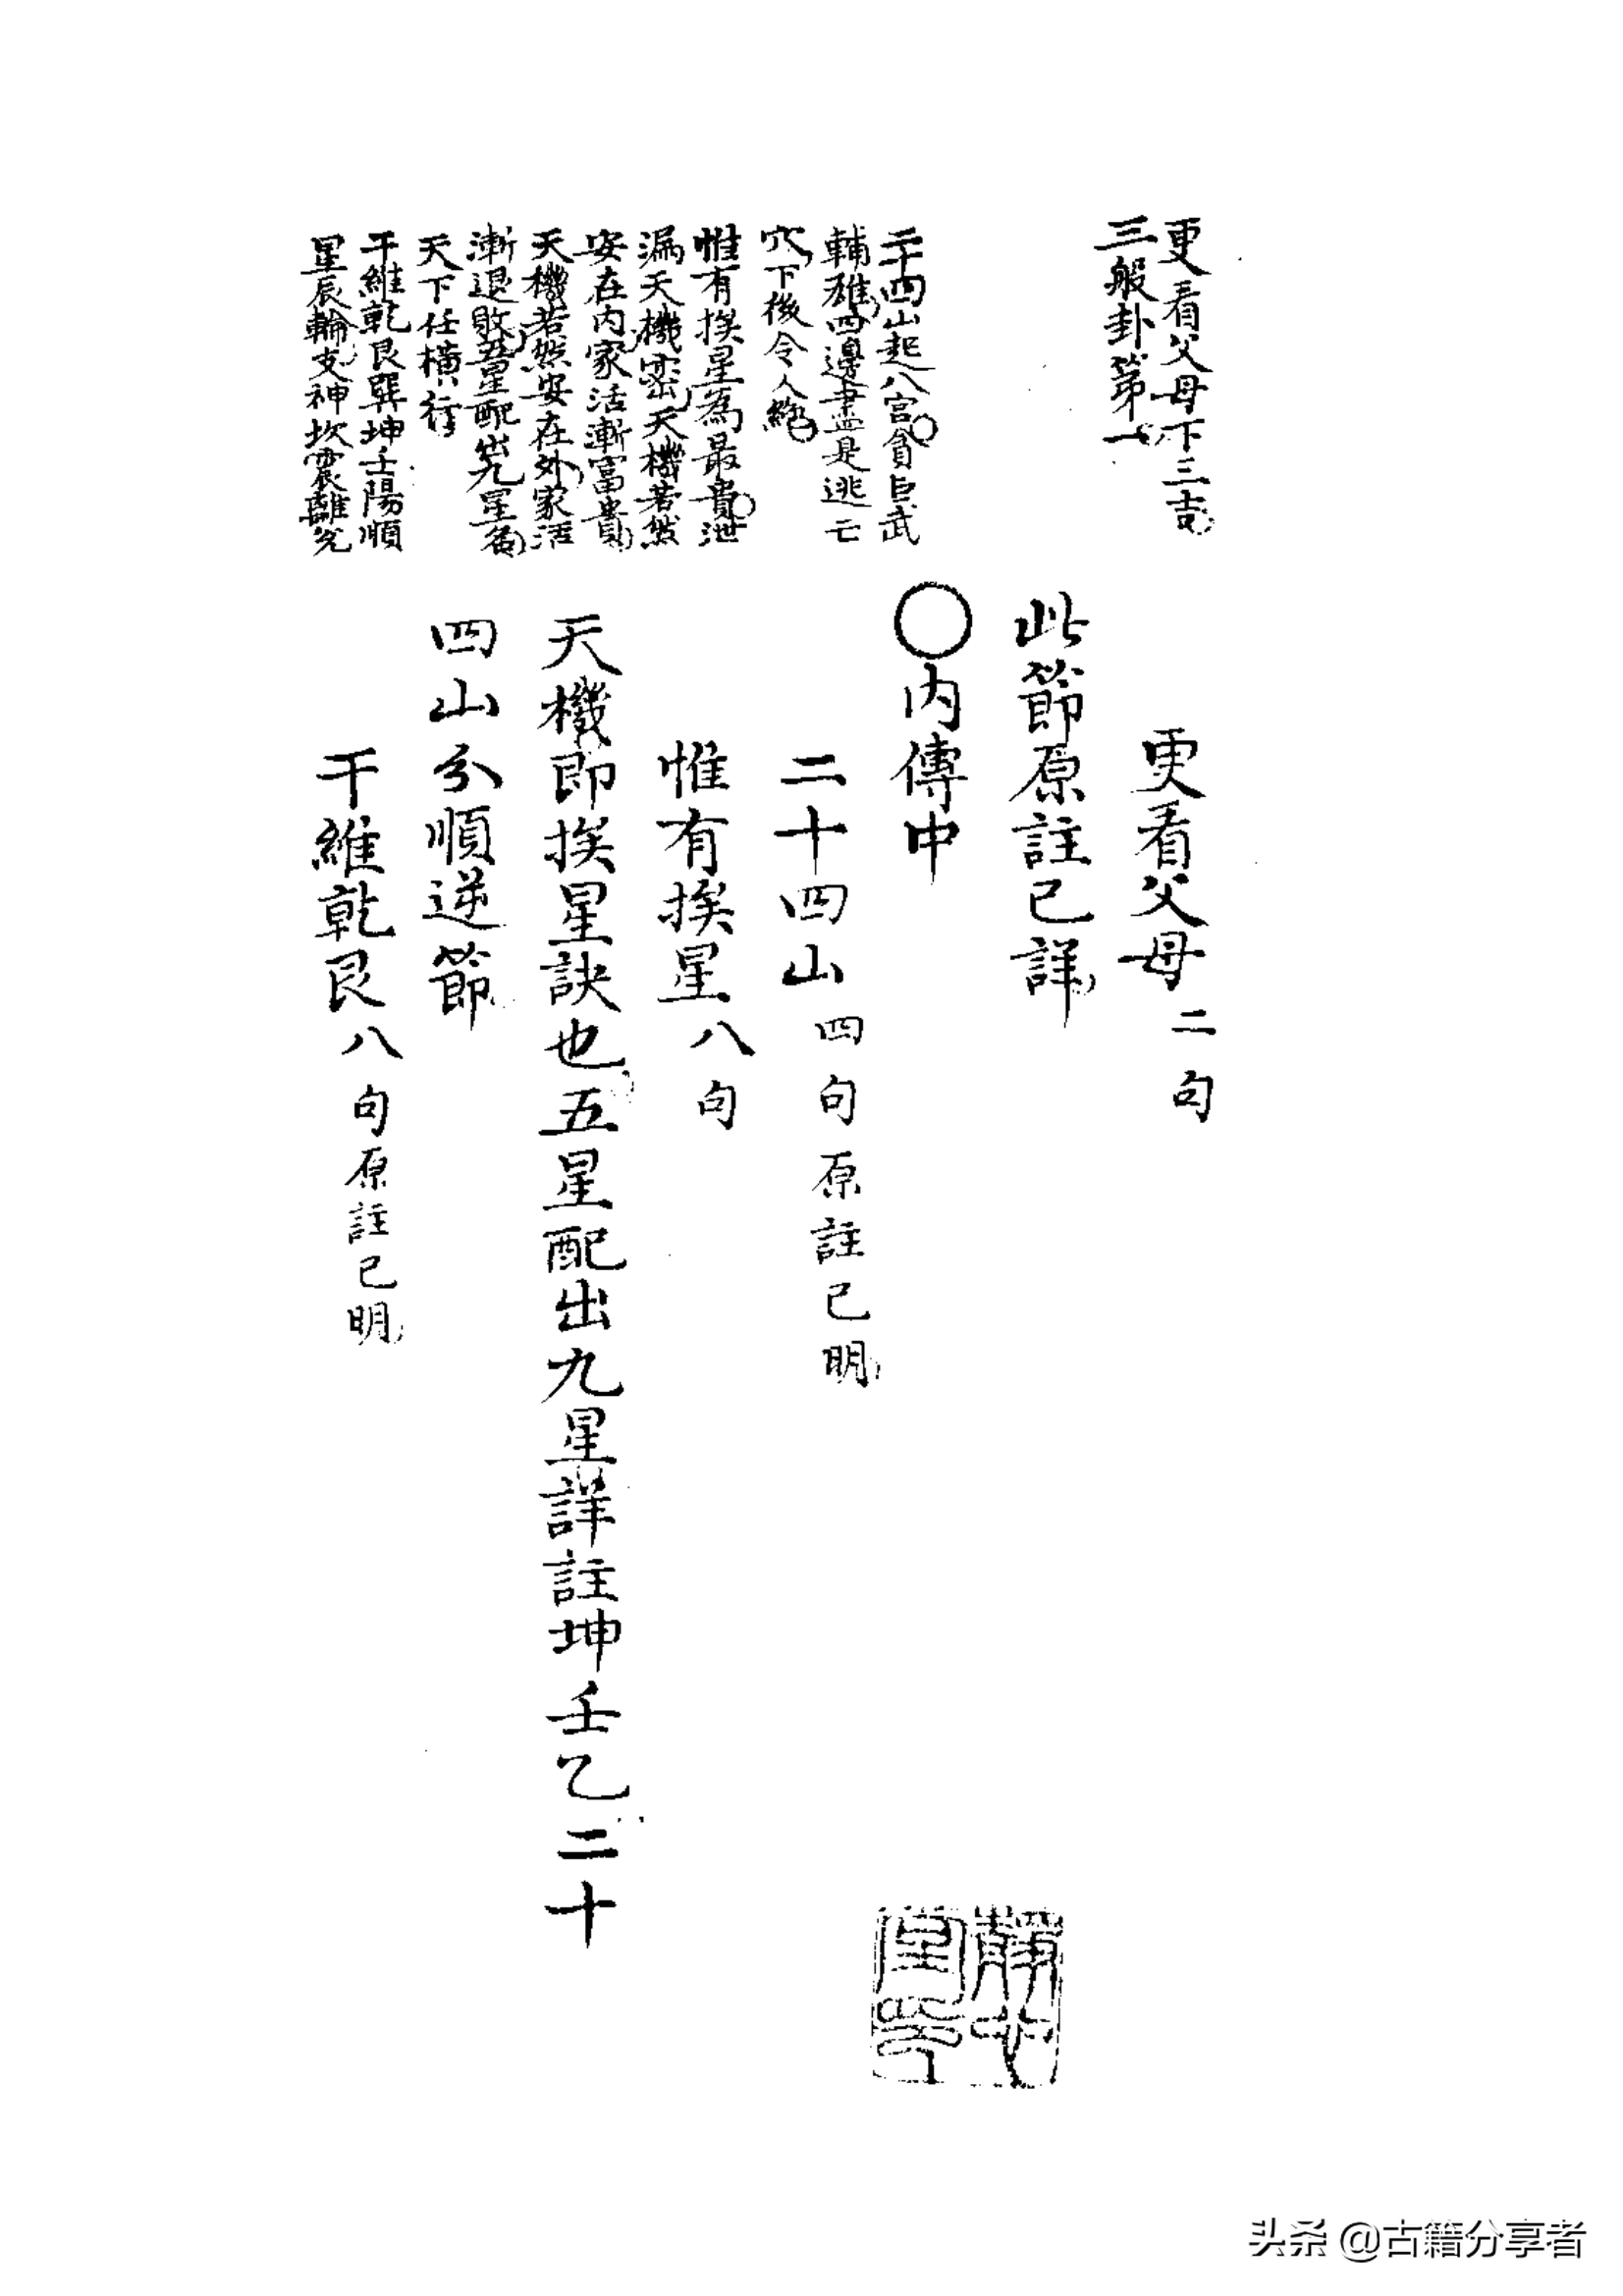 更看父母下三吉
三般卦第一
二十四山起八宮貪巨武
輔雄四邊盡是逃亡
穴下後令人絕
惟有挨星為最貴泄
漏天機密天機若然
安在內家活漸富貴
天機若然安在外家活
漸退敗五星配出九星名
天下任橫行
干維乾艮巽坤壬陽順
星辰輪支神坎震離兌
更看父母二句
此節原註已詳
〇內傳中
二十四山四句原註已明
惟有挨星八句
天機即挨星訣也五星配出九星詳註坤壬乙二十
四山分順逆節
干維乾艮八句原註已明
頭条 @古籍分享者